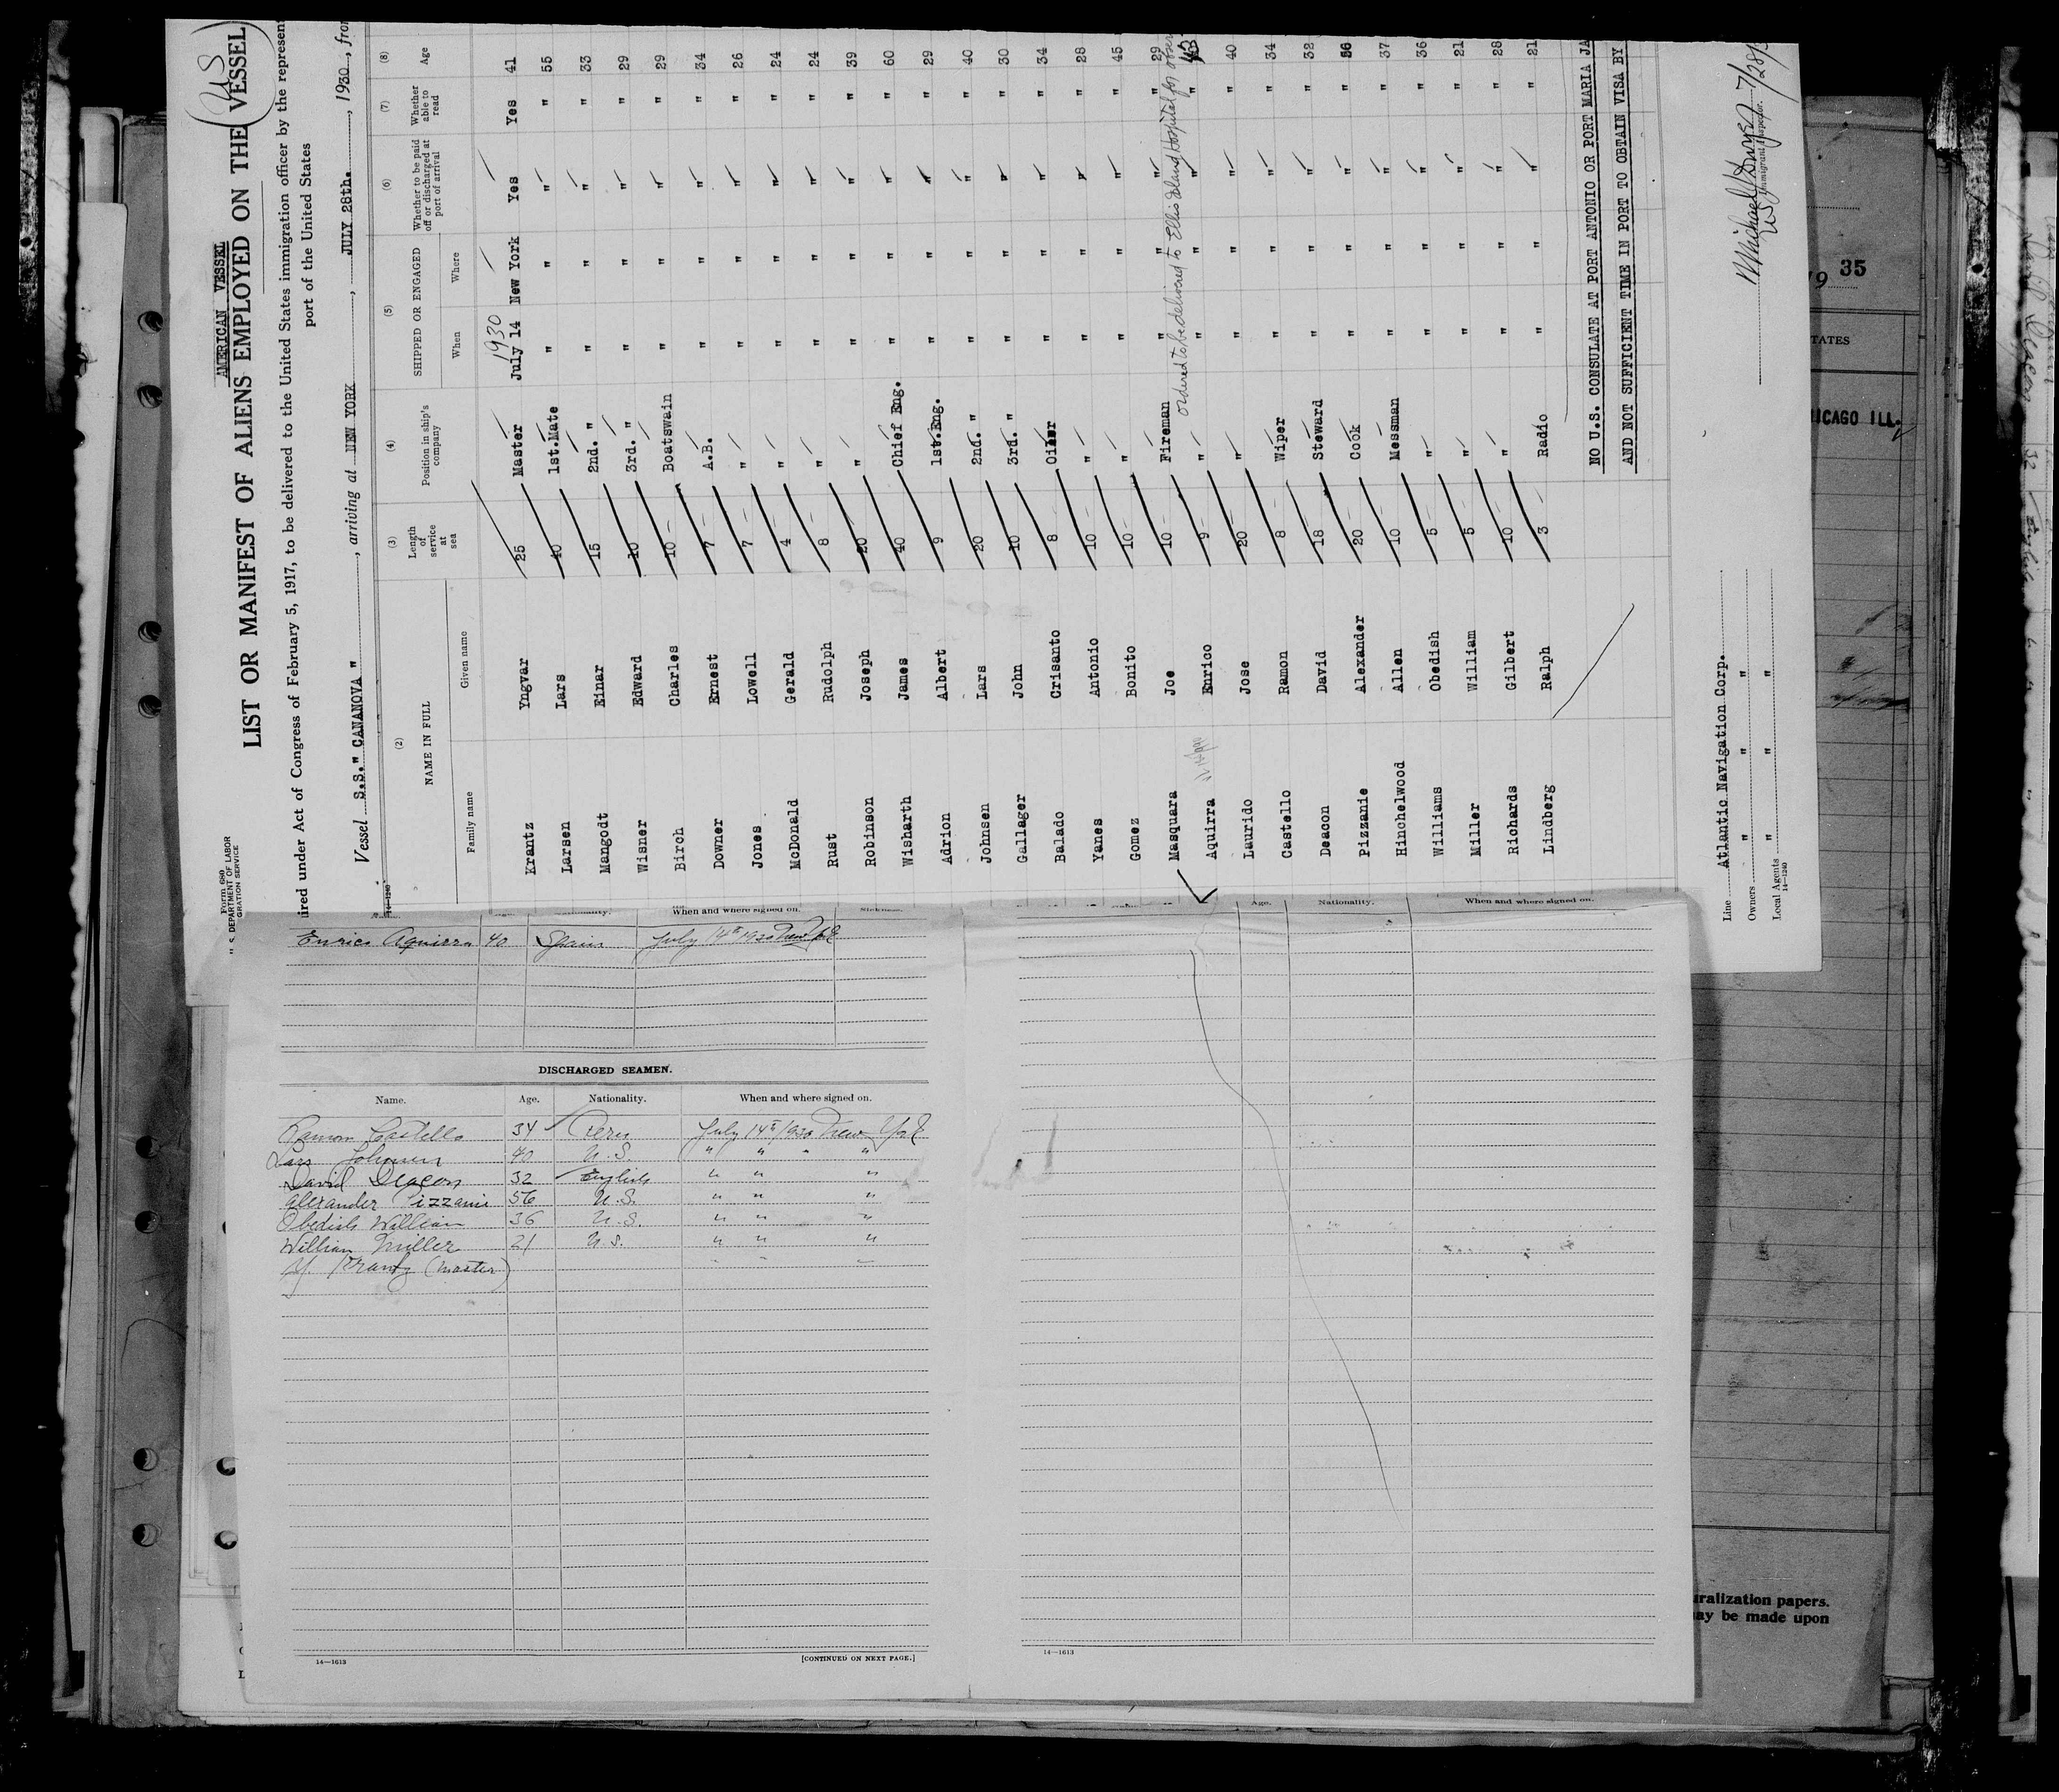 Form 680
U. S. DEPARTMENT OF LABOR
GRATION SERVICE
AMERICAN VESSEL
US
LIST OR MANIFEST OF ALIENS EMPLOYED ON THE VESSEL
ired under Act of Congress of February 5, 1917, to be delivered to the United States immigration officer by the represen
port of the United States
Vessel S.S." CANANOVA ", arriving at NEW YORK, JULY 28th., 1930, from
14-1240
(2) (3) (4) (5) (6) (7) (8)
NAME IN FULL Length of service at sea Position in ship's company SHIPPED OR ENGAGED Whether to be paid off or discharged at port of arrival Whether able to read Age
Family name Given name When Where
1930
Krantz Yngvar 25 Master July 14 New York Yes Yes 41
Larsen Lars 40 1st.Mate " " " " 55
Mangodt Einar 15 2nd. " " " " " 33
Wisner Edward 10 3rd. " " " " " 29
Birch Charles 10 Boatswain " " " " 29
Downer Ernest 7 A.B. " " " " 34
Jones Lowell 7 " " " " " 26
McDonald Gerald 4 " " " " " 24
Rust Rudolph 8 " " " " " 24
Robinson Joseph 20 " " " " " 39
Wisharth James 40 Chief Eng. " " " " 60
Adrion Albert 9 1st.Eng. " " " " 29
Johnsen Lars 20 2nd. " " " " " 40
Gallager John 10 3rd. " " " " " 30
Balado Crisanto 8 Oiler " " " " 34
Yanes Antonio 10 " " " " " 28
Gomez Bonito 10 " " " " " 45
Masquara Joe 10 Fireman " " " " 29
ordered to be delivered to Ellis Island Hospital for obser
Aquirra Enrico 9 " " " " " 43
Laurido Jose 20 " " " " " 40
Castello Ramon 8 Wiper " " " " 34
Deacon David 18 Steward " " " " 32
Pizzanie Alexander 20 Cook " " " " 56
Hinchelwood Allen 10 Messman " " " " 37
Williams Obedish 5 " " " " " 36
Miller William 5 " " " " " 21
Richards Gilbert 10 " " " " " 28
Lindberg Ralph 3 Radio " " " " 21
NO U.S. CONSULATE AT PORT ANTONIO OR PORT MARIA JA
AND NOT SUFFICIENT TIME IN PORT TO OBTAIN VISA BY
Line Atlantic Navigation Corp.
Owners " " "
Local Agents " " "
14-1240
7/28/3
Immigrant Inspector.
Age. Nationality. When and where signed on. Sickness.
Enrico Aquirra 40 Spain July 14th 1930 New York
DISCHARGED SEAMEN.
Name. Age. Nationality. When and where signed on.
Ramon Castello 34 Peru July 14th 1930 New York
Lars Johnsen 40 U.S. " " " "
David Deacon 32 English " " "
Alexander Pizzanie 56 U.S. " " "
Obedish William 36 U.S. " " "
William Miller 21 U.S. " " "
Y. Krantz (Master) " " "
14—1613
[CONTINUED ON NEXT PAGE.]
Age. Nationality. When and where signed on.
14—1613
19 35
TATES
HICAGO ILL.
uralization papers.
may be made upon